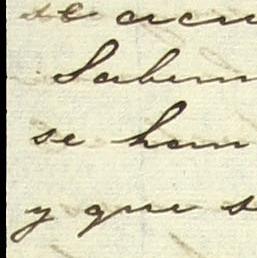 se acu
Sabem
se han
y que s